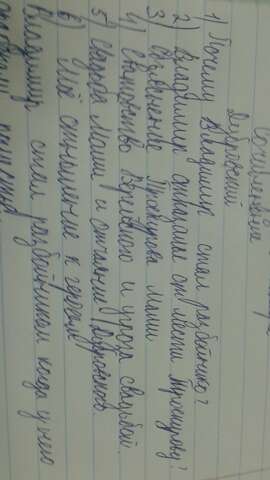 Сочинение
Дубровский
1) Почему Владимир стал разбойником?
2) Владимир отказался от мести Троекурову?
3) Обьяснение Троекурова Маши
4) Сватовство Верейского и угроза свадьбой.
5) Свадьба Маши и отчаяние Дубровского
6) Моё отношение к героям
Владимир стал разбойником когда у него
отобрали поместье